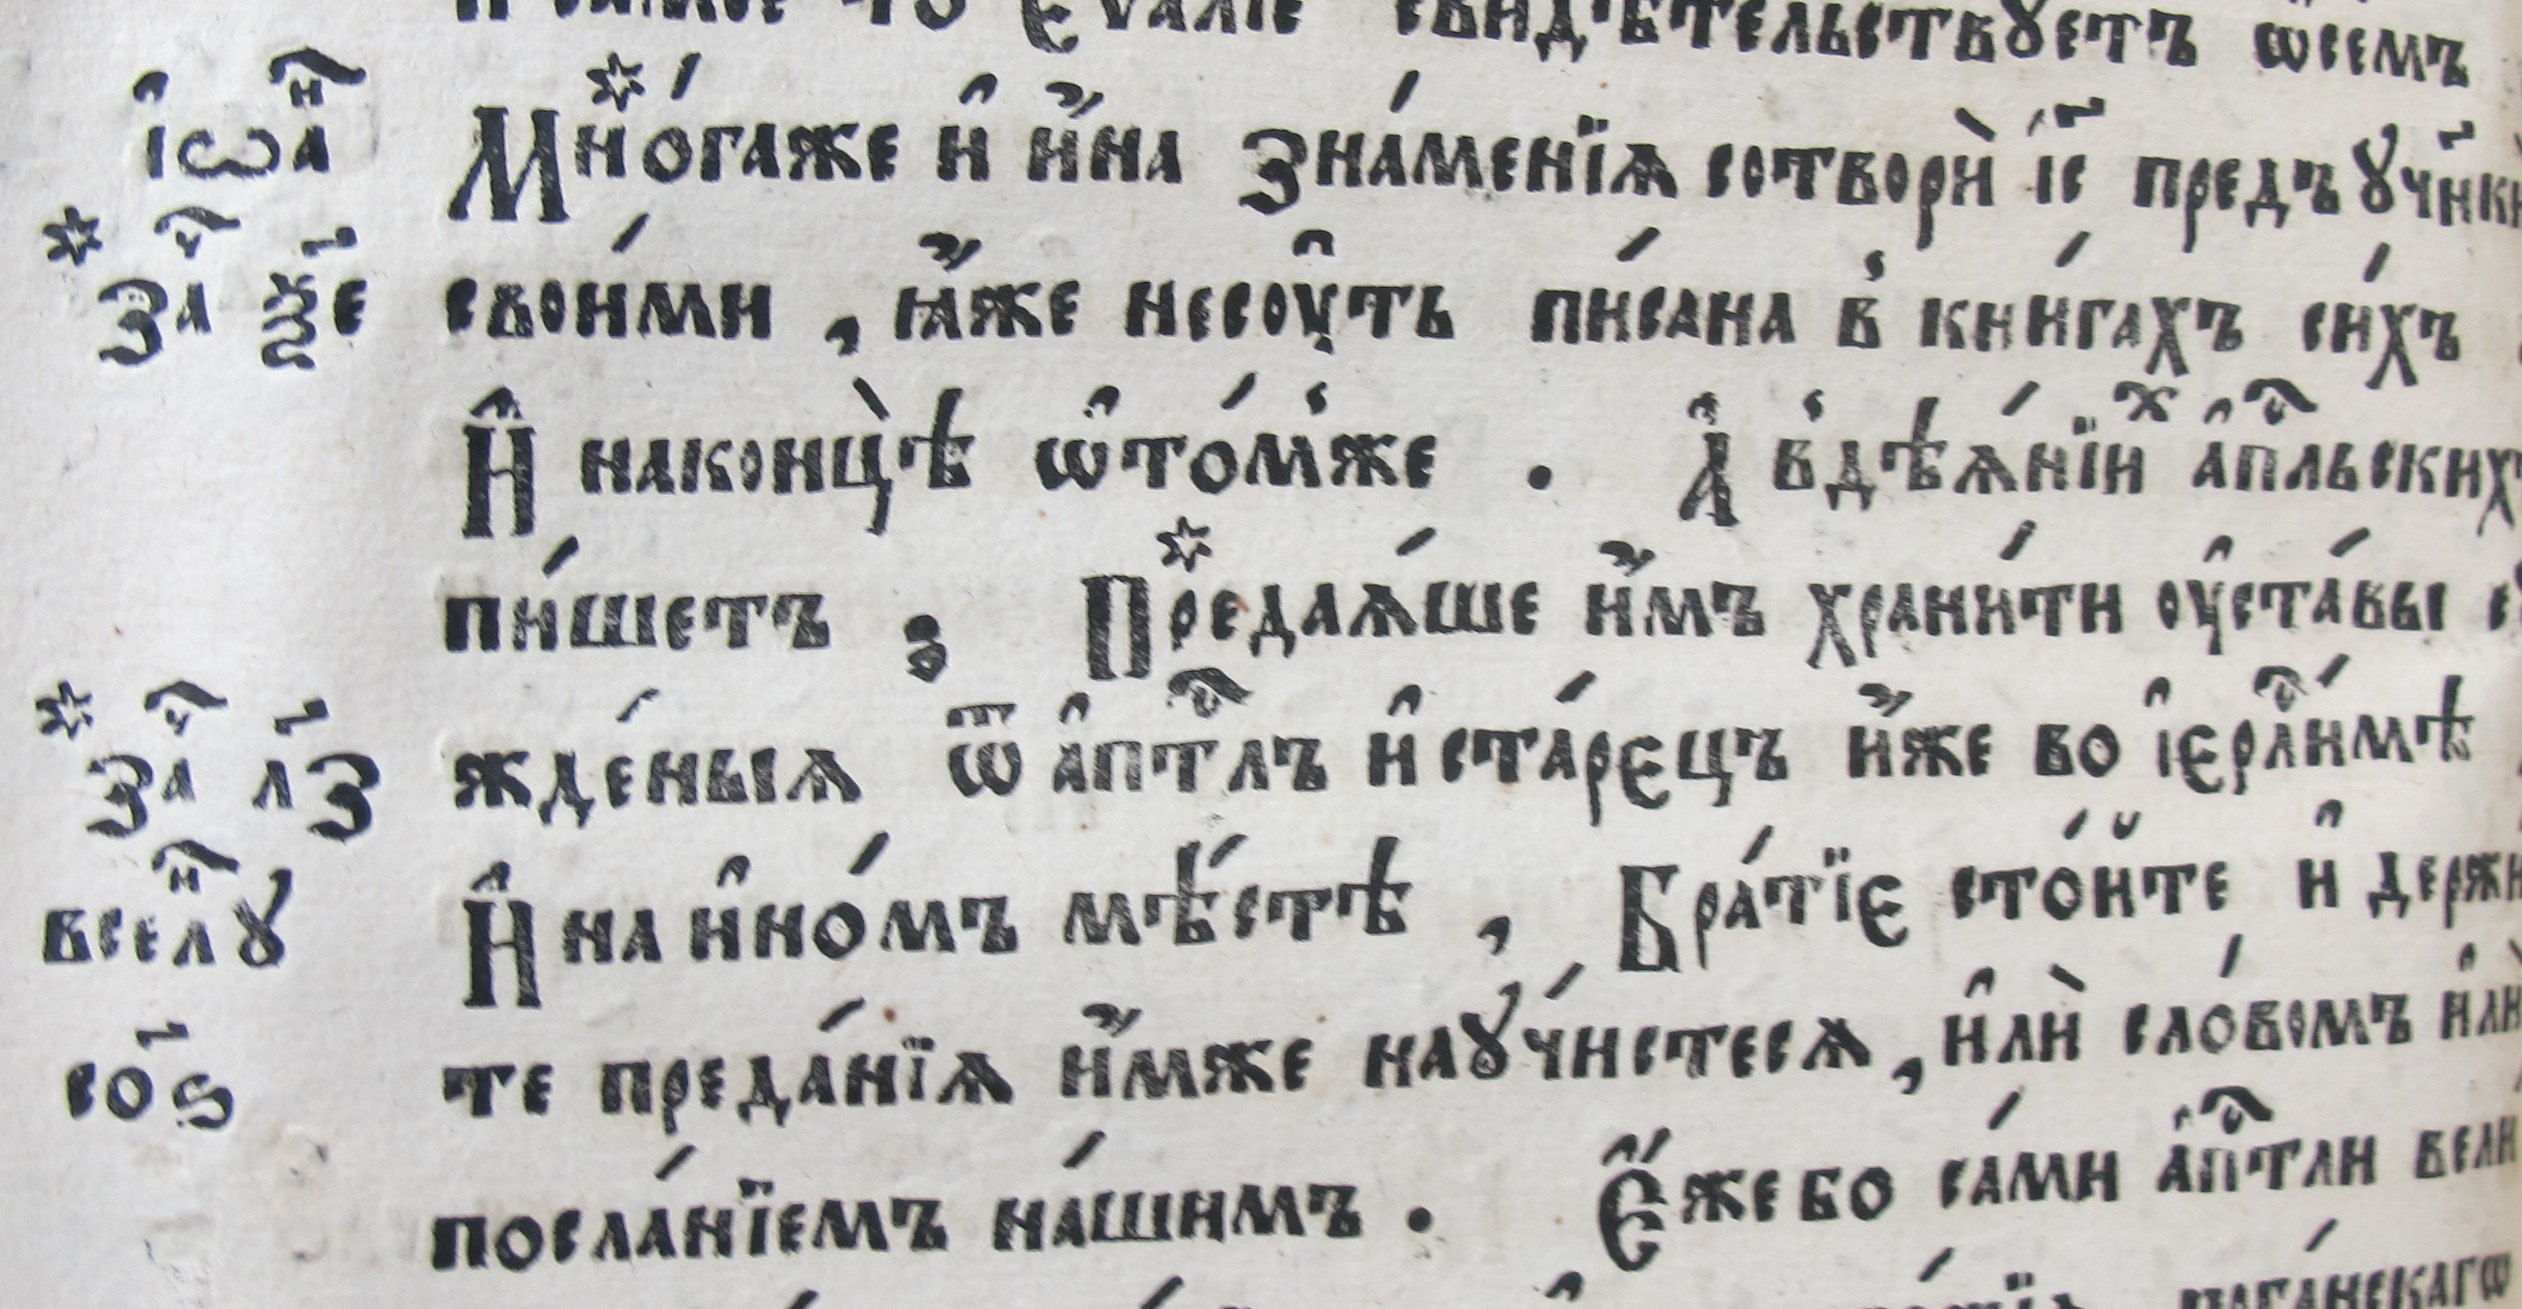 свидѣтельствꙋетъ ѡ҆семъ
і҆ѡⷩ҇а Мно́гаже и҆ и҆́на зна́менїѧ сотворѝ і҆с҃ предъ
за ѯ҃е свои́ми , ꙗ҆́же несоу҆ть пи́сана в҆ кни́гахъ си́хъ
И҆ наконцѣ̀ ѡ҆то́м҆же . А҆ в҆дѣѧ́нїиⷯ а҆пⷭ҇льскихъ
пи́шетъ ; Предаѧ́ше и҆́мъ храни́ти оу҆ста́вы
за л҃з жде́ныѧ ѿ а҆пⷭ҇тлъ и҆ ста́рєцъ и҆́же во і҆єрⷭ҇ли́мѣ
вселꙋⷩ҇ И҆ на и҆но́мъ мѣ́стѣ , Бра́тїє сто́йте и҆ держи
со҃ѕ те преда́нїѧ и҆́мже наꙋчи́стесѧ , и҆лѝ сло́вомъ и҆лѝ
посла́нїемъ на́шимъ . Є҆́жебо са́ми а҆пⷭ҇тли вели
пога́нскагѡ